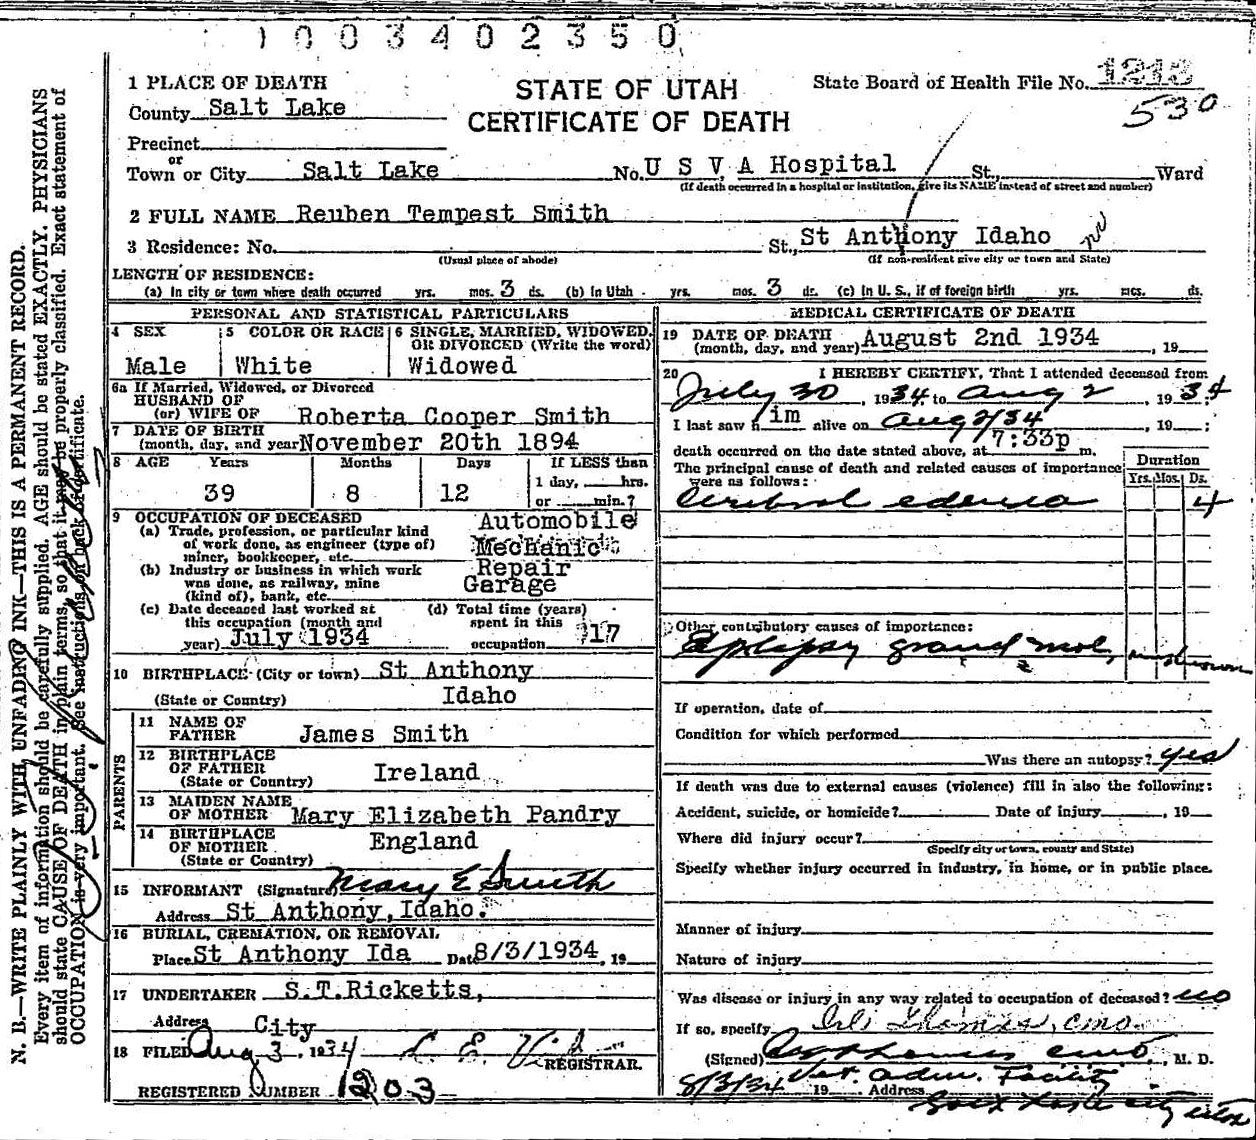 1003402350
1 PLACE OF DEATH
STATE OF UTAH
CERTIFICATE OF DEATH
State Board of Health File No. 1213
530
County Salt Lake
Precinct
or
Town or City Salt Lake No. U S V A Hospital St., Ward
(If death occurred in a hospital or institution, give its NAME instead of street and number)
2 FULL NAME Reuben Tempest Smith
3 Residence: No. St., St Anthony Idaho
(Usual place of abode) (If non-resident give city or town and State)
LENGTH OF RESIDENCE:
(a) In city or town where death occurred yrs. mos. 3 ds. (b) In Utah yrs. mos. 3 ds. (c) In U. S., if of foreign birth yrs. mos. ds.
PERSONAL AND STATISTICAL PARTICULARS
4 SEX
Male
5 COLOR OR RACE
White
6 SINGLE, MARRIED, WIDOWED,
OR DIVORCED (Write the word)
Widowed
6a If Married, Widowed, or Divorced
HUSBAND OF
(or) WIFE OF Roberta Cooper Smith
7 DATE OF BIRTH
(month, day, and year November 20th 1894
8 AGE Years Months Days If LESS than
1 day, hrs.
39 8 12
or min.?
9 OCCUPATION OF DECEASED Automobile
(a) Trade, profession, or particular kind
of work done, as engineer (type of) Mechanic
miner, bookkeeper, etc.
(b) Industry or business in which work Repair
was done, as railway, mine Garage
(kind of), bank, etc.
(c) Date deceased last worked at
this occupation (month and
year) July 1934
(d) Total time (years)
spent in this
occupation 17
10 BIRTHPLACE (City or town) St Anthony
(State or Country) Idaho
PARENTS
11 NAME OF
FATHER James Smith
12 BIRTHPLACE
OF FATHER Ireland
(State or Country)
13 MAIDEN NAME
OF MOTHER Mary Elizabeth Pandry
14 BIRTHPLACE
OF MOTHER England
(State or Country)
15 INFORMANT (Signature Mary E Smith
Address St Anthony, Idaho.
16 BURIAL, CREMATION, OR REMOVAL
Place St Anthony Ida Dat 8/3/1934, 19
17 UNDERTAKER S.T.Ricketts,
Address City
18 FILED Aug 3, 1934
REGISTRAR.
REGISTERED NUMBER 1203
MEDICAL CERTIFICATE OF DEATH
19 DATE OF DEATH
(month, day, and year) August 2nd 1934, 19
20 I HEREBY CERTIFY, That I attended deceased from
July 30, 1934 to Aug 2, 1934;
I last saw h im alive on Aug 2/34, 19 ;
death occurred on the date stated above, at 7:33p m.
The principal cause of death and related causes of importance
were as follows:
Duration
Yrs. Mos. Ds.
Cerebral edema 4
Other contributory causes of importance:
Epilepsy grand mal, unknown
If operation, date of
Condition for which performed
Was there an autopsy? yes
If death was due to external causes (violence) fill in also the following:
Accident, suicide, or homicide? Date of injury , 19
Where did injury occur?
(Specify city or town, county and State)
Specify whether injury occurred in industry, in home, or in public place.
Manner of injury
Nature of injury
Was disease or injury in any way related to occupation of deceased? no
If so, specify
(Signed) , M. D.
8/3/34 19 Address Vet. Adm. Facility
Salt Lake City Utah
N. B.—WRITE PLAINLY WITH UNFADING INK—THIS IS A PERMANENT RECORD.
Every item of information should be carefully supplied. AGE should be stated EXACTLY. PHYSICIANS
should state CAUSE OF DEATH in plain terms, so that it may be properly classified. Exact statement of
OCCUPATION is very important. See instructions on back of certificate.